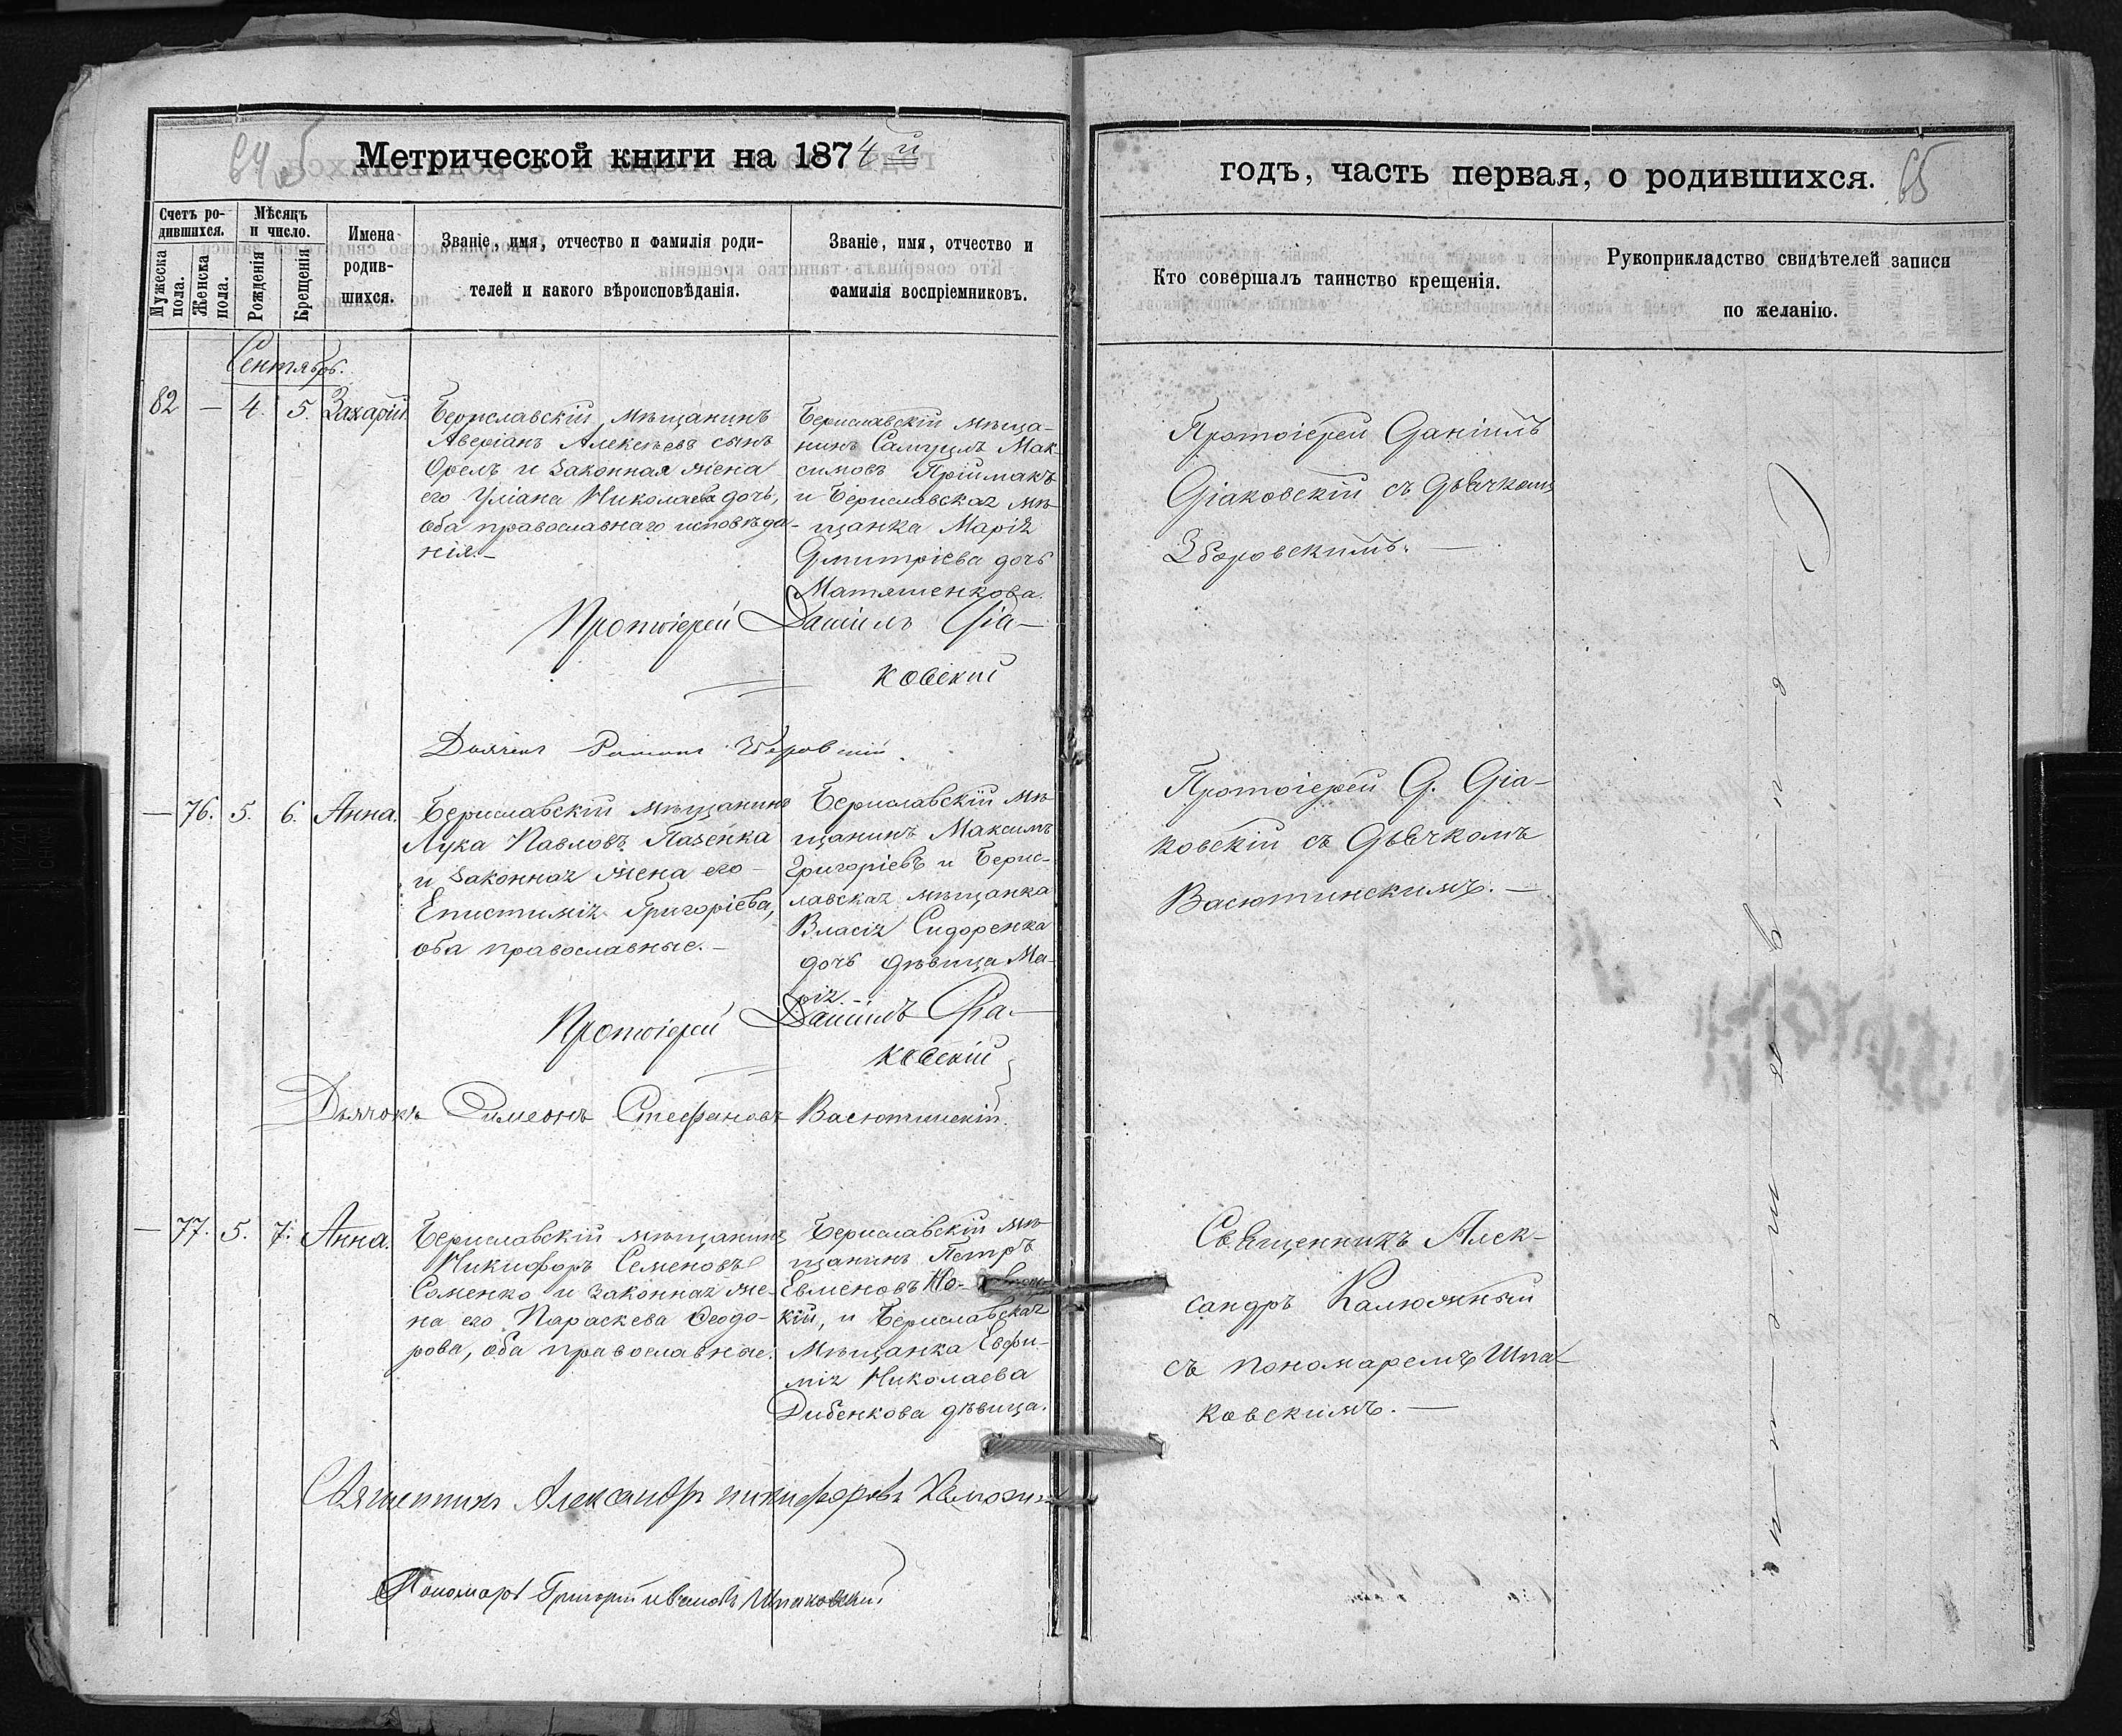 Метрической книги на 1874й
Счетъ ро-
дившихся.
Мужеска
пола.
Женска
пола.
Мѣсяцъ
и число.
Рожденія
Крещенія
Имена
родив-
шихся.
Званіе, имя, отчество и фамилія роди-
телей и какого вѣроисповѣданія.
Званіе, имя, отчество и
фамилія воспріемниковъ.
Сентябрь.
82 — 4. 5. Захарій
Бериславскій мѣщанинъ
Аверіанъ Алексѣевъ сынъ
Орелъ и законная жена
его Уліана Николаева дочь,
оба православнаго исповѣда-
нія.—
Бериславскій мѣща-
нинъ Самуилъ Мак-
симовъ Пріймакъ
и Бериславская мѣ-
щанка Марія
Дмитріева дочь
Матяшенкова.
Протоіерей Даніилъ Діа-
ковскій
Дьячекъ Романъ Зборовскій.
— 76. 5. 6. Анна.
Бериславскій мѣщанинъ
Лука Павловъ Пазенка
и законная жена его
Епистимія Григоріева,
оба православные.—
Бериславскій мѣ-
щанинъ Максимъ
Григоріевъ и Берис-
лавская мѣщанка
Власія Сидоренка
дочь дѣвица Ма-
рія.—
Протоіерей Даніилъ Діа-
ковскій
Дьячокъ Симеонъ Стефановъ Васютинскій.
— 77. 5. 7. Анна.
Бериславскій мѣщанинъ
Никифоръ Семеновъ
Соменко и законная же-
на его Параскева Феодо-
рова, оба православные.
Бериславскій мѣ-
щанинъ Петръ
Евменовъ
кій, и Бериславская
мѣщанка Евфи-
мія Николаева
Дибенкова дѣвица.
Священникъ Александръ Никифоровъ
Пономарь Григорій Ивановъ Шпаковскій
годъ, часть первая, о родившихся.
65
Кто совершалъ таинство крещенія.
Рукоприкладство свидѣтелей записи
по желанію.
Протоіерей Даніилъ
Діаковскій съ дьячкомъ
Зборовскимъ.—
Протоіерей Д. Діа-
ковскій съ дьячкомъ
Васютинскимъ.—
Священникъ Алек-
сандръ Калюжный
съ пономаремъ Шпа-
ковскимъ.—